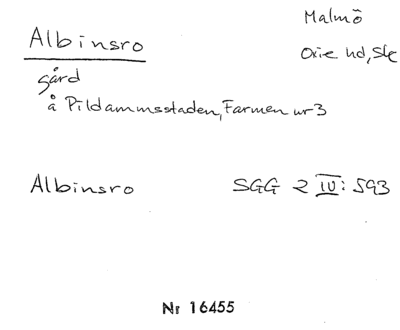 Malmö
Albinsro
Oxie hd, Ske
gård
å Pildammsstaden, Farmen nr 3
Albinsro SGG 2 IV: 593
Nr 16455